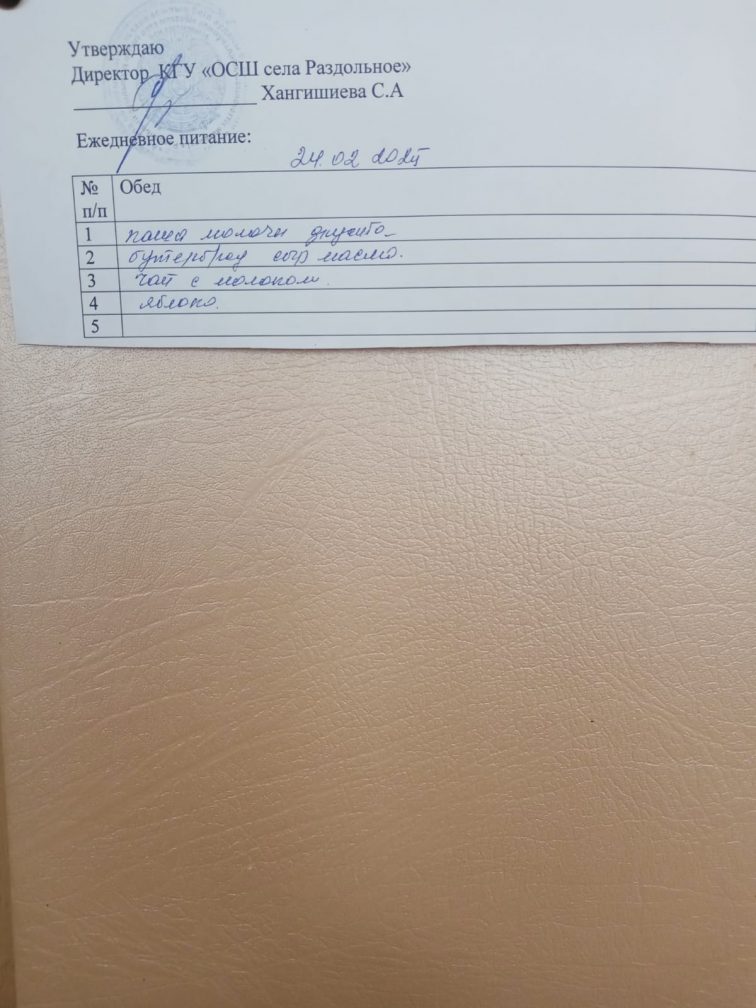 Утверждаю
Директор КГУ «ОСШ села Раздольное»
Хангишиева С.А
Ежедневное питание:
24.02 2025г
№ п/п Обед
1 каша молочн дружба
2 бутерброд сыр масло.
3 чай с молоком.
4 яблоко.
5